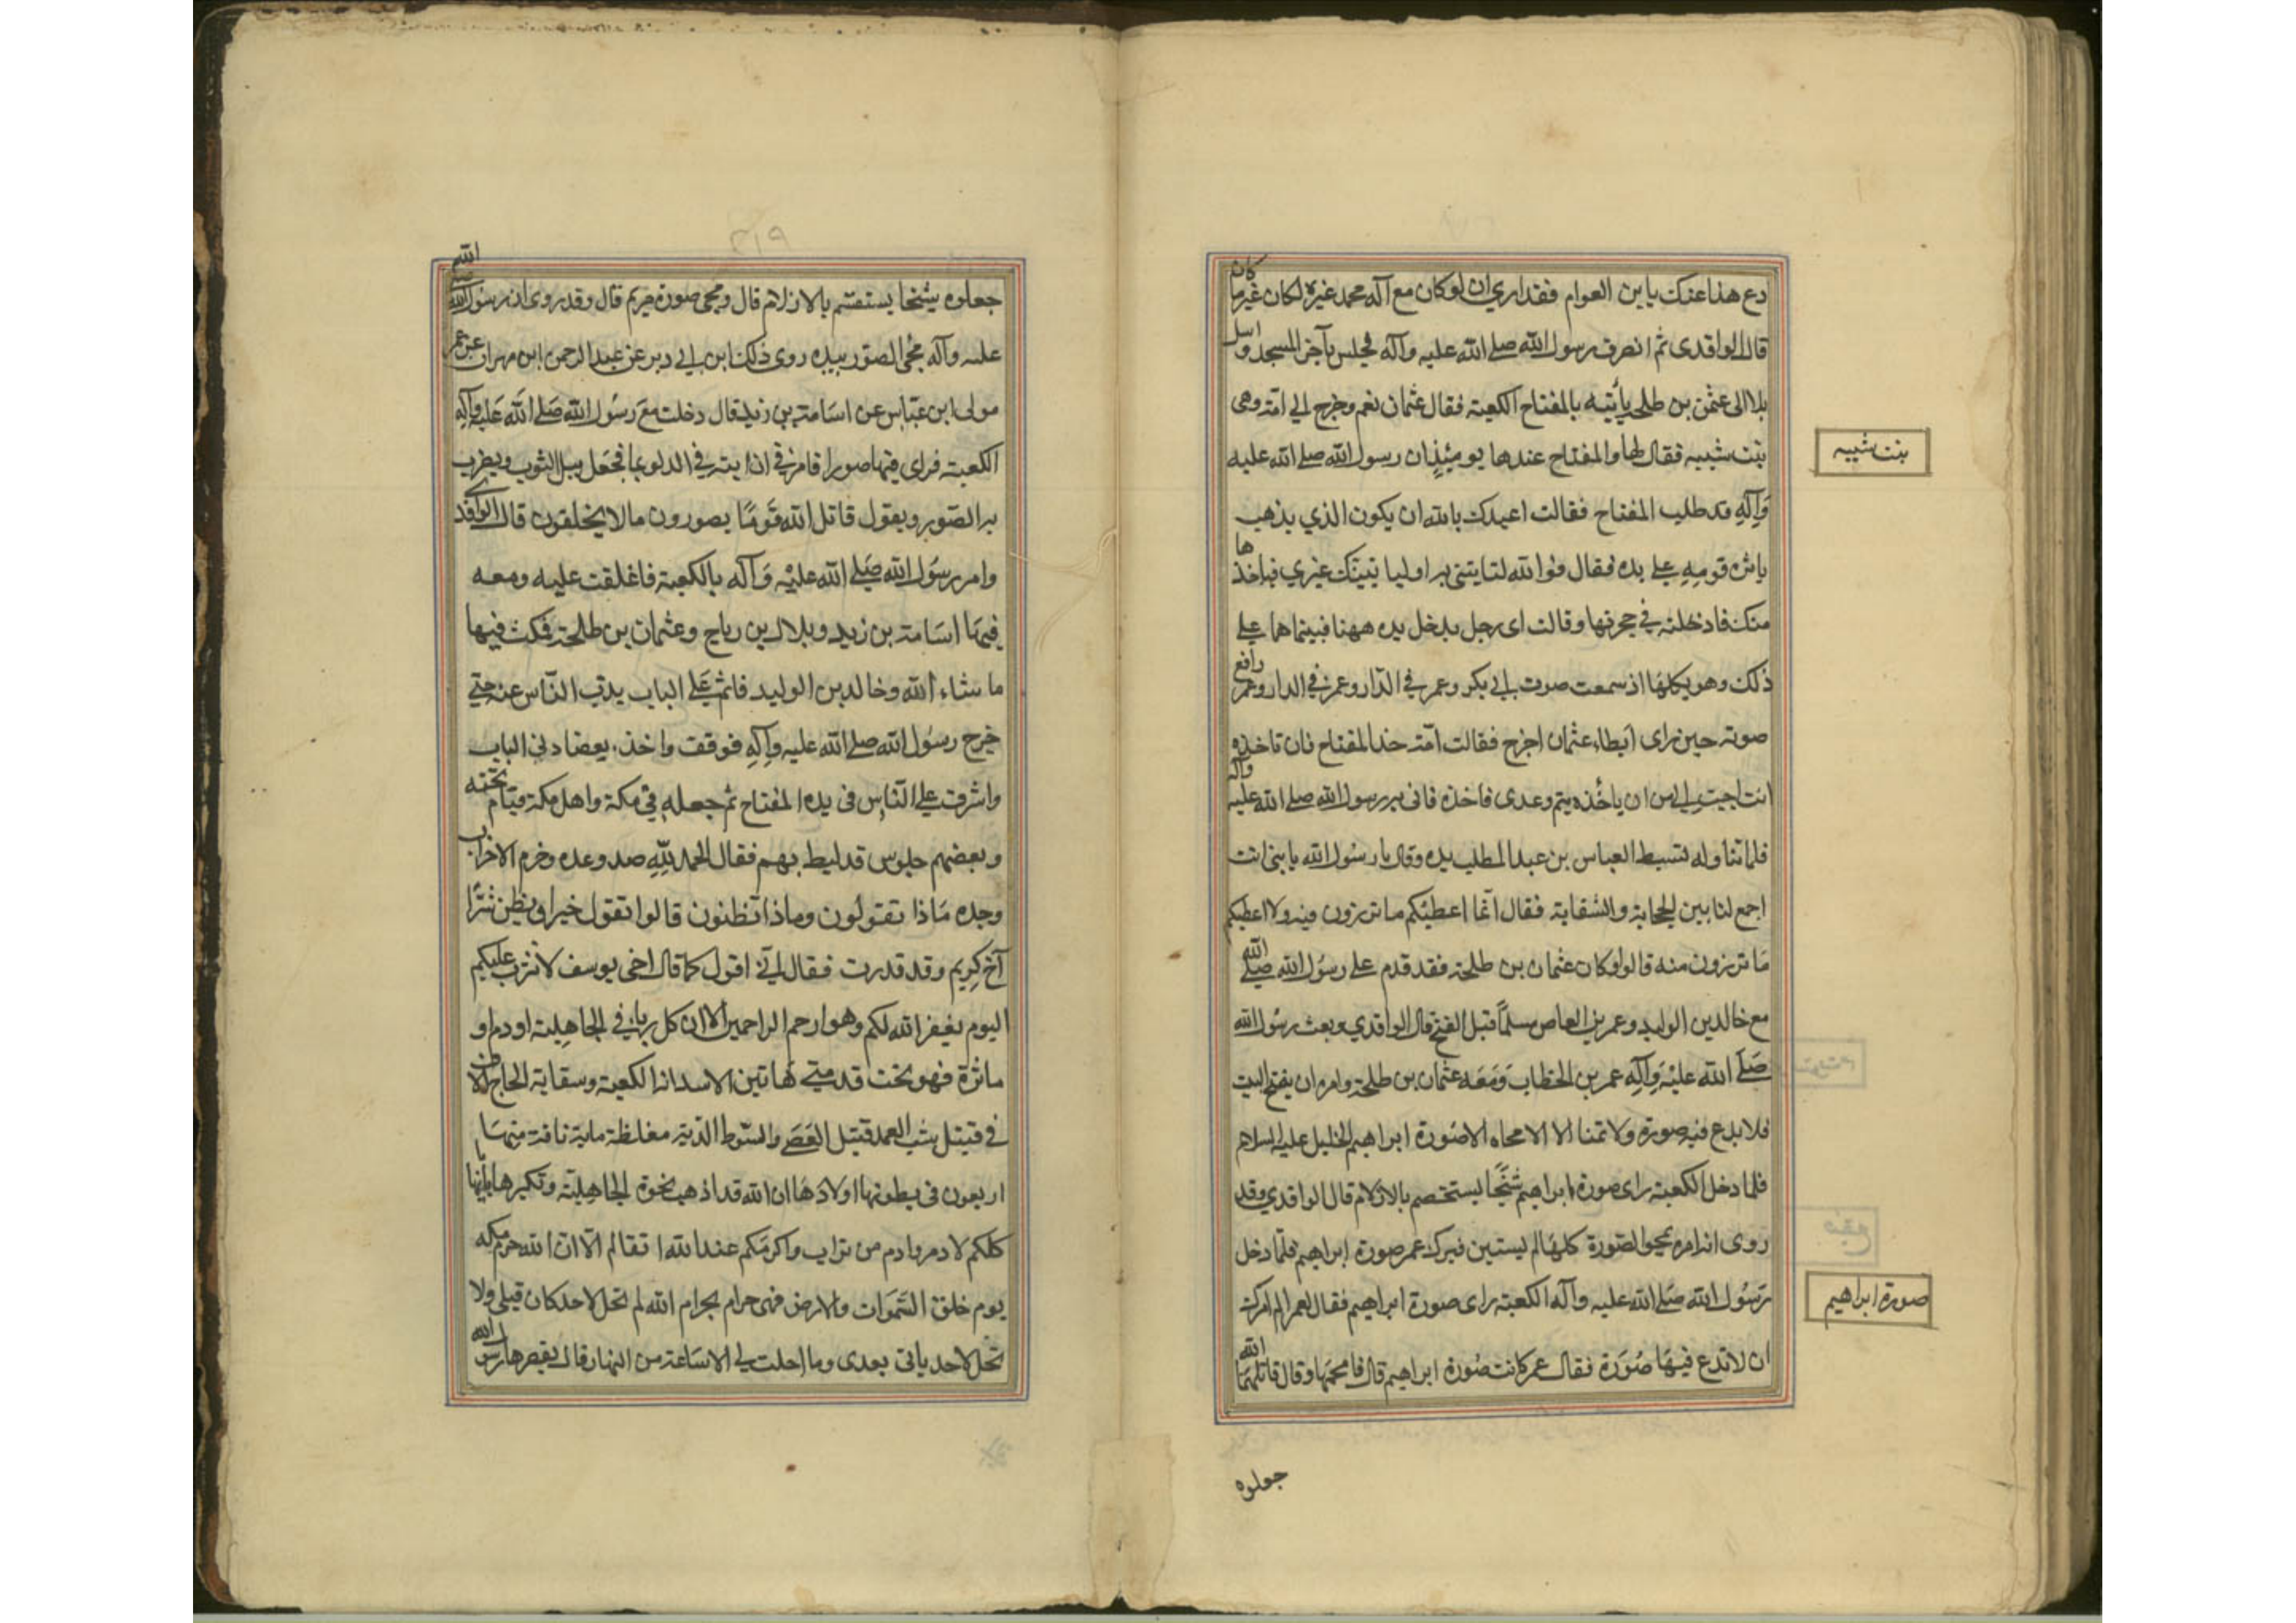 كان
دع هذا عنك يا بن العوام فقد اري ان لو كان مع آله محمد غيره لكان غير ما
قال الواقدى ثم انصرف رسول الله صلى الله عليه وآله فجلس بآخر المسجد وارسل
بلالا الى عثمن بن طلحه يأتيه بالمفتاح الكعبة فقال عثمان نعم وخرج الى امّه وهى
بنت شيبه فقال لها والمفتاح عندها يومئذ ان رسول الله صلى الله عليه
بنت شيبه
وَآلِهِ قد طلب المفتاح فقالت اعيذك بالله ان يكون الذي يذهب
ها
قومه على يده فقال فوالله غيري فياخذ
منك فادخلته في حجرتها وقالت اى رجل يدخل يده ههنا فبينما هما على
رافع
ذلك وهو يكلمها اذ سمعت صوت ابي بكر وعمر في الدّار وعمر في الدار وعمر
صوته حين راى ابطاء عثمان اخرج فقالت امّه خذ المفتاح فان تاخذه
وآله
انت احبّ الي من ان ياخذه يتم وعدى فاخذه فاتى به رسول الله صلى الله عليه
فلما تناوله بسط العباس بن عبد المطلب يده وقال يا رسول الله يا بنى انت
اجمع لنا بين الحجابة والسّقاية فقال انّما اعطيكم ما ترزون فيه ولا اعطيكم
الله
مَا ترزون منه قالوا وكان عثمان بن طلحة فقد قدم على رسول الله صلى
مع خالد بن الوليد وعمر بن العاص مسلمًا قبل الفتح قال الواقدي وبعث رسول الله
صَلَى الله عليْه وَآلِهِ عمر بن الخطاب وَمَعَه عثمان بن طلحة وامره ان يفتح البيت
فلا يدع فيه صورة ولا تمثالا الا محاه الا صُورة ابراهيم الخليل عليه السلام
فلما دخل الكعبة راى صورة ابراهيم شيخًا يستقسم بالازلام قال الواقدي وقد
روى انه امره بمحو الصّورة كلهَا فترك عمر صورة ابراهيم فلمّا دخل
رَسُول الله صَلى الله عليه وآله الكعبة راى صورة ابراهيم فقال لعمر الم امرك
صورة ابراهيم
الله
ان لا تدع فيهَا صُوَرة فقال عمر كانت صُورة ابراهيم قال فامحها وقال قاتلهم
جعلوه
٣١٩
الله
جعلوه شيخا يستقسم بالازلام قال ومحى صورة مريم قال وقد روى ان رسول الله
عن عمر
عليه وآله محى الصّور بيده روى ذلك ابن ابي عن عبد الرحمن ابن مهران
مولى ابن عبّاس عن اسَامة بن زيد قال دخلت معَ رسُول الله صَلى الله عَليه وآلِه
الكعبة فراى فيها صورا فامرني ان اتيه في الدلو بما فجعل يبل الثوب ويضرب
به الصّور ويقول قاتل الله قَومًا يصورون ما لا يخلقون قال الواقدي
وامر رسُول الله صَلى الله عليْه وَآله بالكعبة فاغلقت عليه ومعه
فيهَا اسَامة بن زيد وبلال بن رباح وعثمان بن طلحة فمكث فيها
ما شاء الله وخالد بن الوليد قائم عَلى الباب يذب النّاس عنه حتى
خرج رسُول الله صلى الله عليه وآلِهِ فوقف واخذ بعضادتي الباب
تحته
واشرف على النّاس فى يده المفتاح ثم جعله في مكة واهل مكة قيام
وبعضهم جلوس قد ليط بهم فقال الحمد للّهِ صدق وعده وهزم الاحزاب
وحده مَاذا تقولون وماذا تظنون قالوا نقول خيرا ونظن شرّا
آخ كريم وقد قدرت فقال اني اقول كما قال اخى يوسف لا تثريب عليكم
اليوم يغفر الله لكم وهو ارحم الراحمين الا ان كل ربا في الجاهِلية او دم او
ماثرة فهو تحت قدمى هاتين الا سدانة الكعبة وسقاية الحاج الا
وان
في قتيل شبه العمد قتيل العَصَى والسّوط الدّية مغلظة ماية ناقة منهَا
اربعون فى بطونها اولادهَا ان الله قد اذهب نخوة الجاهِليّة وتكبرها بابائها
كلكم لادم وادم من تراب واكرمَكم عند الله اتقاكم الّا ان الله حرّم مكه
يوم خلق السّموَات والارض فهى حرام بحرام الله لم تحل لاحد كان قبلى ولا
الله
تحل لاحد ياتى بعدى وما احلت لى الا سَاعة من النهار قال يقصرها رسول